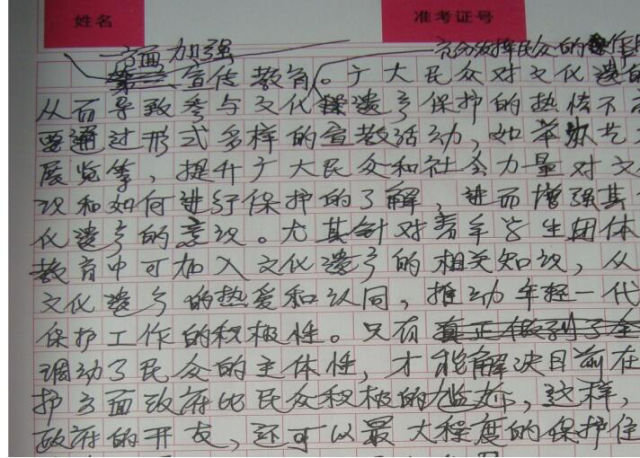 姓名 准考证号
一方面加强 充分发挥民众的作
宣传教育。广大民众对文化遗
从而导致参与文化遗产保护的热情不
要通过形式多样的宣教活动，如举办艺
展览等，提升广大民众和社会力量对文
识和如何进行保护的了解，进而增强其
化遗产的意识。尤其针对青年学生团体
教育中可加入文化遗产的相关知识，从
文化遗产的热爱和认同，推动年轻一代
保护工作的积极性。只有真正做到了全
调动了民众的主体性，才能解决目前在
护方面政府比民众积极的尴尬，这样，
政府的开支，还可以最大程度的保护住